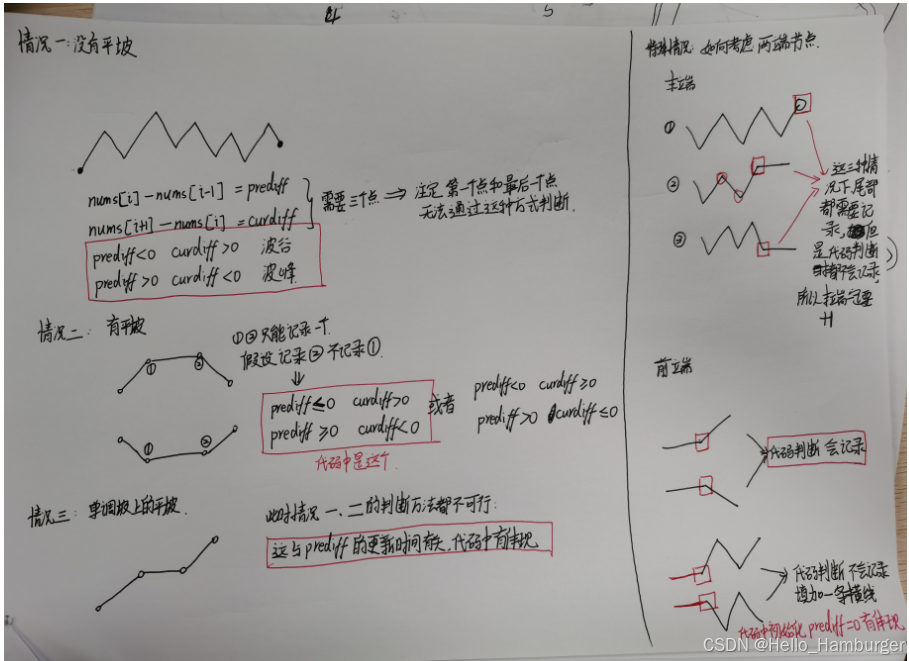 情况一:没有平坡
nums[i]-nums[i-1]=prediff
nums[i+1]-nums[i]=curdiff
需要三个点 ⇒ 注定第一个点和最后一个点
无法通过这种方式判断.
prediff<0 curdiff>0 波谷
prediff>0 curdiff<0 波峰
情况二: 有平坡
①②只能记录一个.
假设记录②不记录①.
① ②
① ②
prediff≤0 curdiff>0
prediff≥0 curdiff<0
代码中是这个.
或者
prediff<0 curdiff≥0
prediff>0 curdiff≤0
情况三: 单调坡上的平坡.
此时情况一、二的判断方法都不可行:
这与prediff的更新时间有关,代码中有体现
特殊情况: 如何考虑两端节点.
末端
①
②
③
这三种情
况下,尾部
都需要记
录,但
是代码判断
时都不会记录,
所以末端一定要
+1
前端
代码判断会记录
代码判断不会记录
增加一条横线
代码中初始化prediff=0有体现
CSDN @Hello_Hamburger